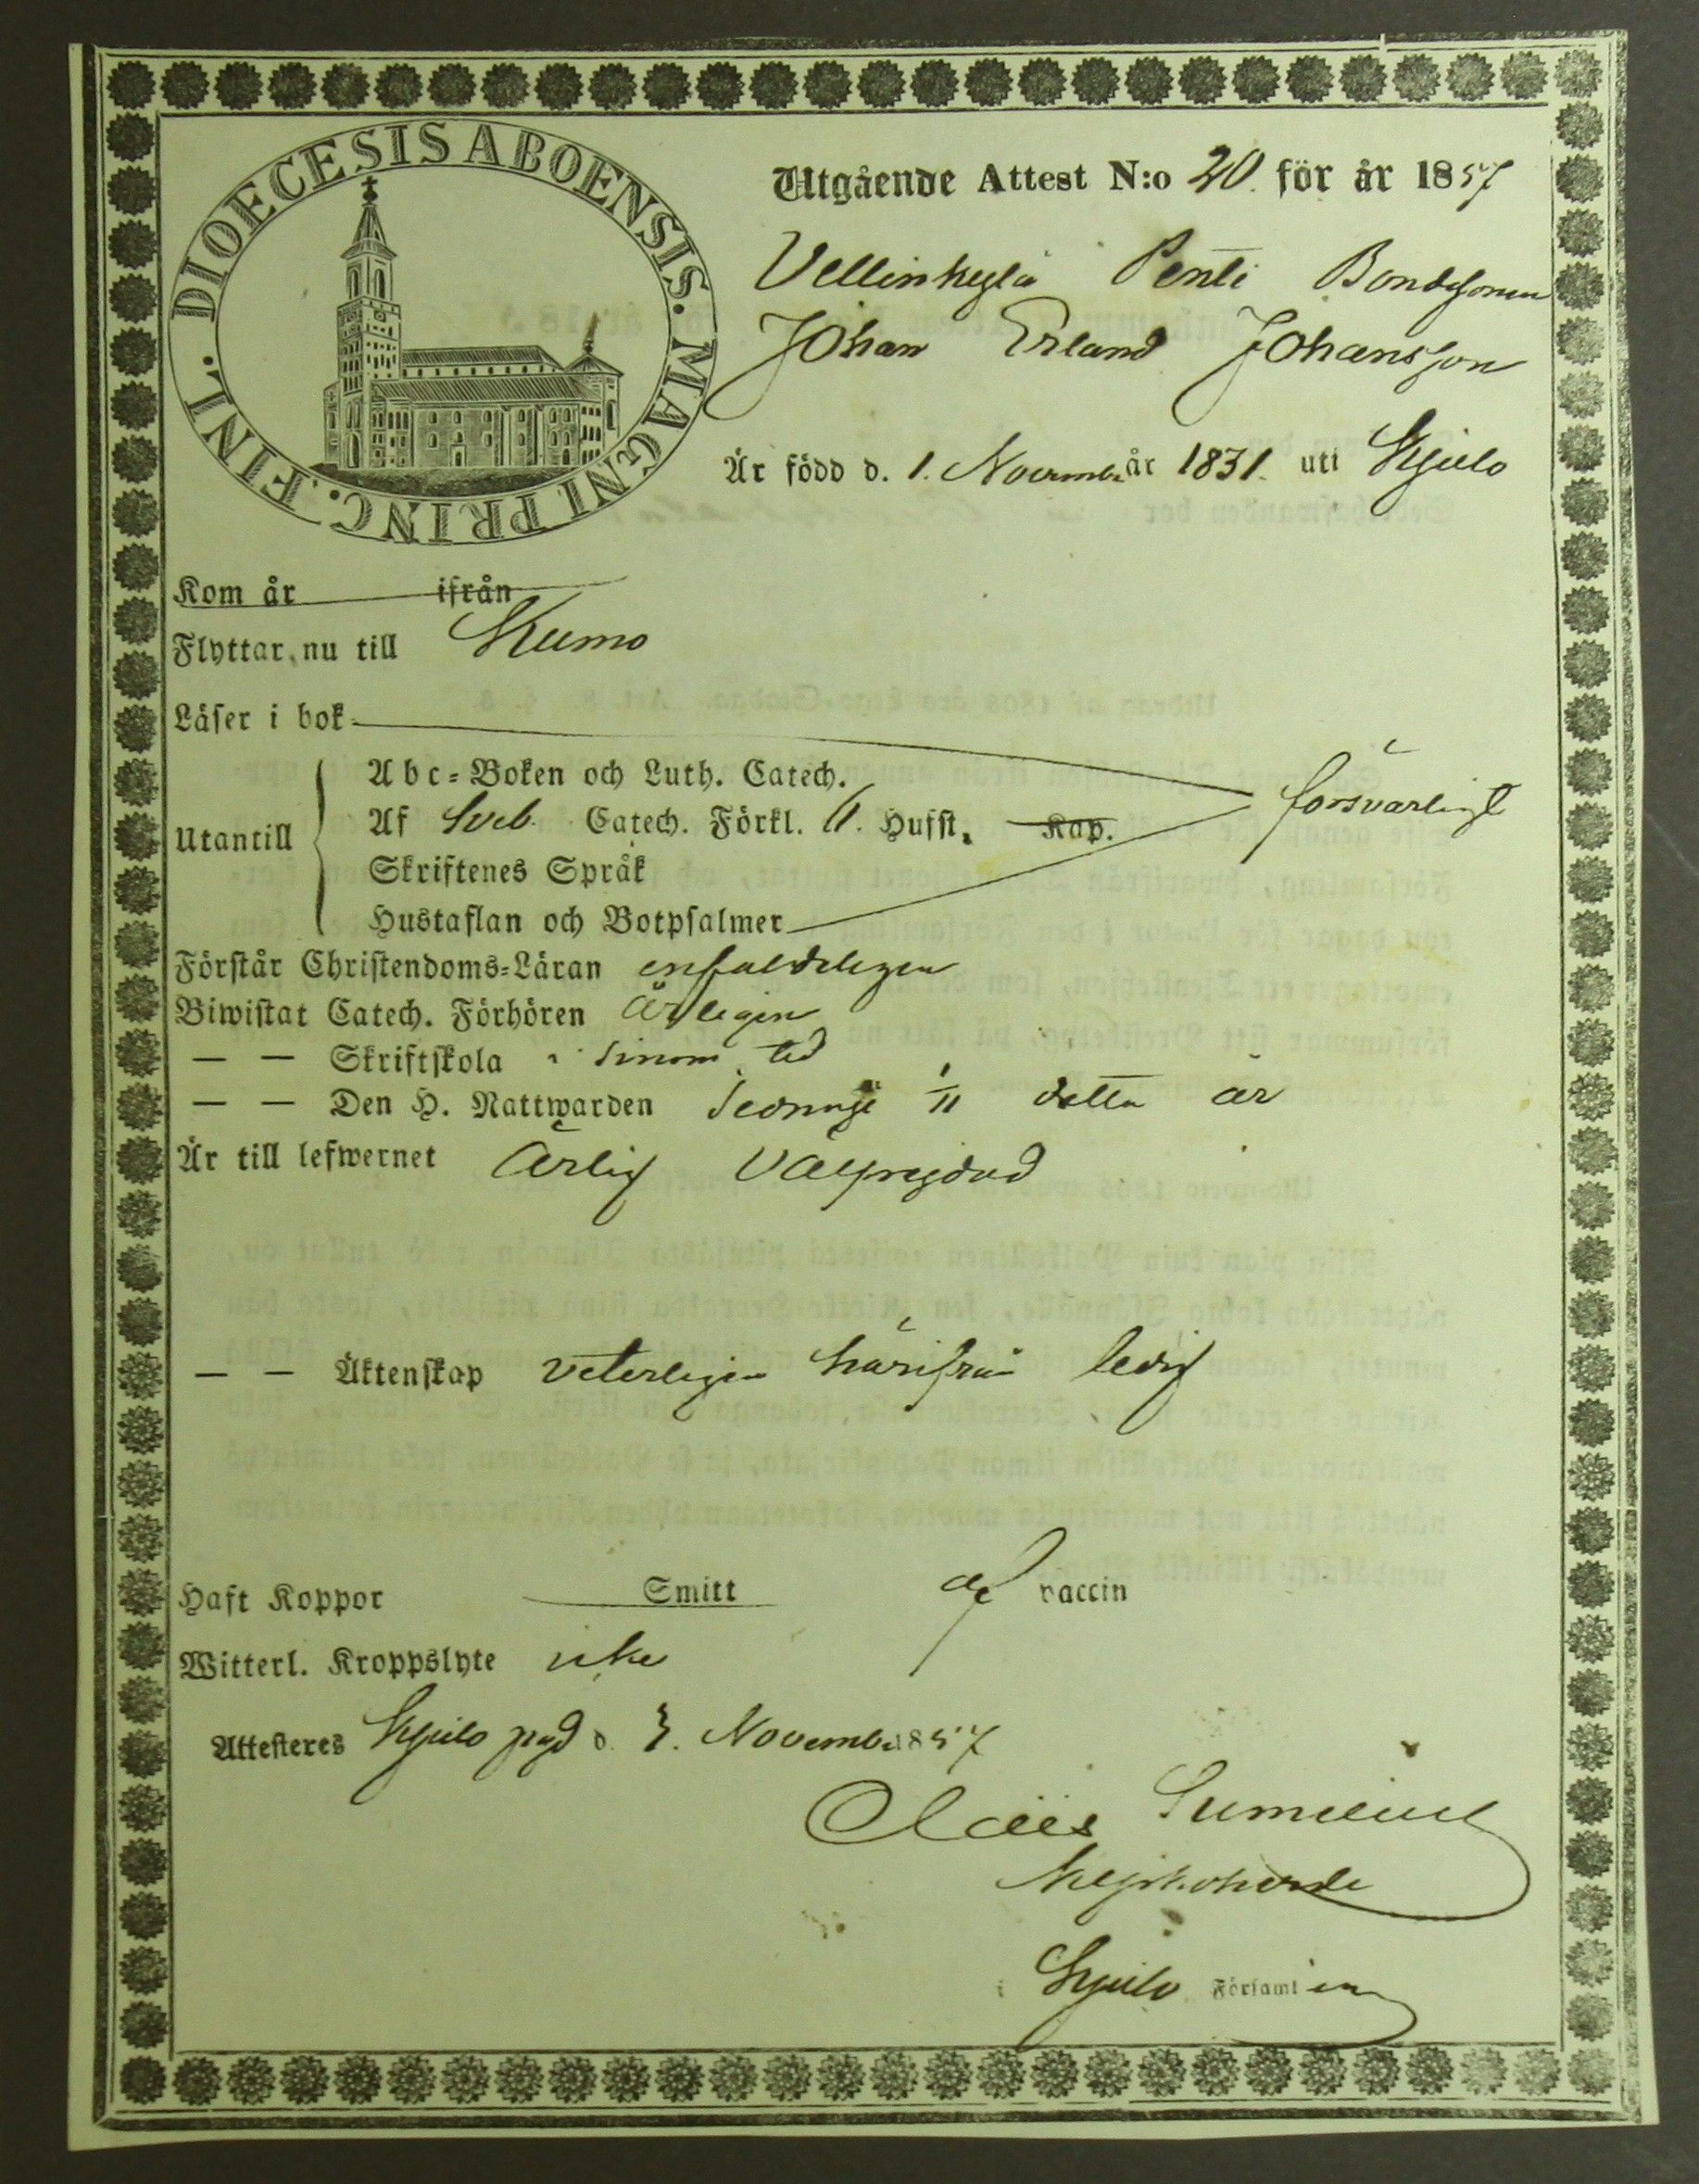 DIOECESIS ABOENSIS. MAGNI PRINC. FINL.
Utgående Attest N:o 20. för år 1857
Vellinkylä Penti Bondesonen
Johan Erland Johansson
Är född d. 1. Novemb. år 1831. uti Kjulo
Kom år ifrån
Flyttar nu till Kumo
Läser i bok
Utantill
Abc-Boken och Luth. Catech.
Af Sveb. Catech. Förkl. 6. Hufst. Kap.
försvarligt
Skriftenes Språk
Hustaflan och Botpsalmer
Förstår Christendoms-Läran enfaldeligen
Biwistat Catech. Förhören Årligen
— — Skriftskola i sinom tid
— — Den H. Nattwarden sednast 1/11 detta år
Är till lefwernet Ärlig Välfrejdad
— — Äktenskap veterligen härifrån ledig
Haft Koppor Smitt af vaccin
Witterl. Kroppslyte icke
Attesteres Kjulo pgd d. 3. Novemb. 1857
Claës
Kyrkoherde
i Kjulo Församl en